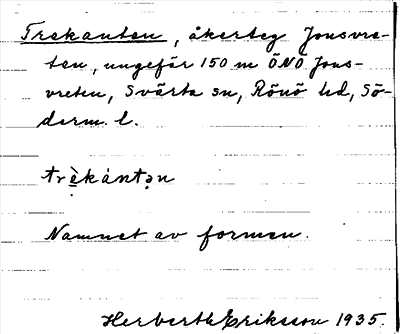 Trekanten, åkerteg Jonsvre-
ten, ungefär 150 m ÖNÖ Jons-
vreten, Svärta sn, Rönö hd, Sö-
derm. l.
trὲkántən
Namnet av formen.
Herbert Eriksson 1935.